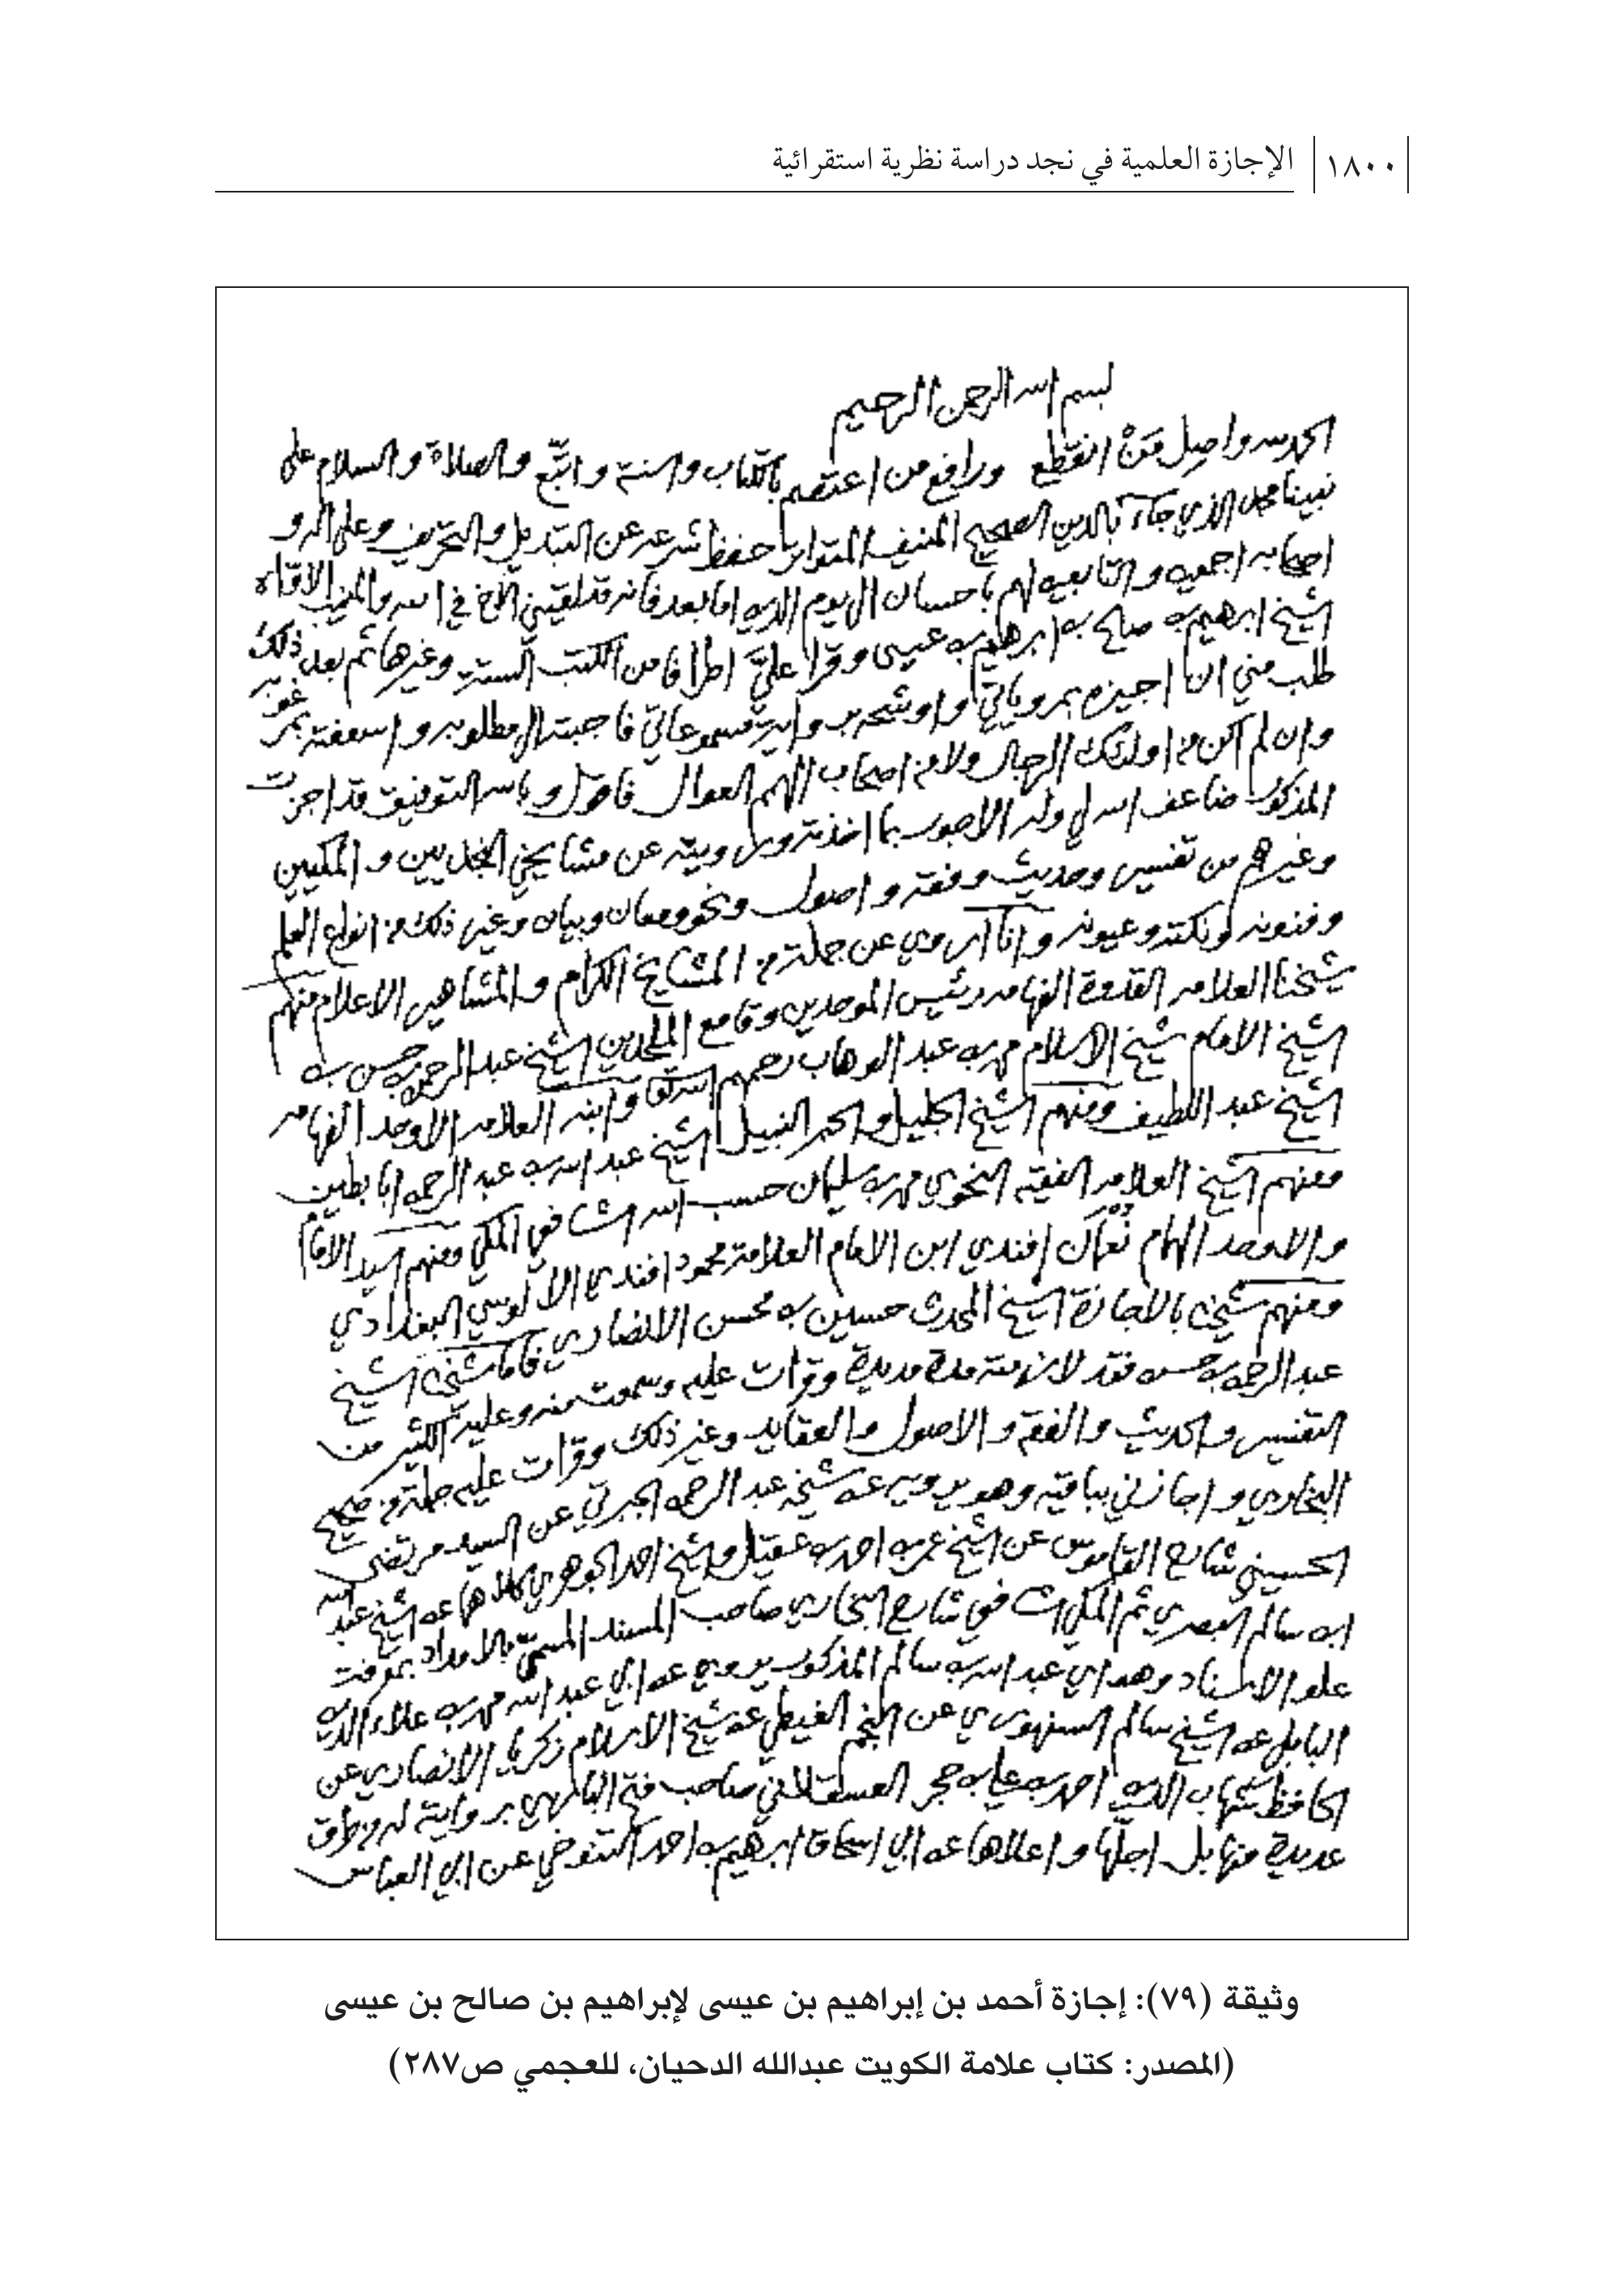 ١٨٠٠ الإجازة العلمية في نجد دراسة نظرية استقرائية
بسم الله الرحمن الرحيم
الحمد لله واصل من انقطع ورافع من اعتصم بالكتاب والسنة واتبع والصلاة والسلام على
نبينا محمد الذي جاء بالدين الصحيح المنيف المتواتر حفظ شرعه عن التبديل والتحريف وعلى اله و
اصحابه اجمعين والتابعين لهم باحسان الى يوم الدين اما بعد فانه قد لقيني الاخ في الله والمنيب الاواه
الشيخ ابرهيم بن صالح بن ابرهيم بن عيسى وقرا عليّ اطرافا من الكتب الستة وغيرها ثم بعد ذلك
طلب مني ان اجيزه بمروياتي واوشحه برواية مسموعاتي فاجبته الى مطلوبه واسعفته بمرغوبه
وان لم اكن من اولئك الرجال ولا من اصحاب الهمم العوال فاقول وبالله التوفيق قد اجزت
المذكور ضاعف الله لي وله الاجور بما اخذته ورويته عن مشايخي النجديين والمكيين
وغيرهم من تفسير وحديث وفقه واصول ونحو ومعان وبيان وغير ذلك من انواع العلم
وفنونه ونكته وعيونه وانا اروي عن جملة من المشايخ الكرام والمشاهير الاعلام منهم
شيخنا العلامه القدوة الفهامه رئيس الموحدين وقامع الملحدين الشيخ عبد الرحمن بن حسن بن
الشيخ الامام شيخ الاسلام محمد بن عبد الوهاب رحمهم الله تعا وابنه العلامه الاوحد الفهامه
الشيخ عبد اللطيف ومنهم الشيخ الجليل والحبر النبيل الشيخ عبد الله بن عبد الرحمن ابا بطين
ومنهم الشيخ العلامه الفقيه النحوي محمد بن سليمان حسب الله الشافعي المكي ومنهم السيد الامام
والاوحد الهمام نعمان افندي ابن الامام العلامة محمود افندي الالوسي البغدادي
ومنهم شيخنا بالاجازة الشيخ المحدث حسين بن محسن الانصاري فاما شيخنا الشيخ
عبد الرحمن بن حسن فقد لازمته مدة مديدة وقرات عليه وسمعت منه وعليه الكثير من
التفسير والحديث والفقه والاصول والعقايد وغير ذلك وقرات عليه جملة من صحيح
البخاري واجازني بباقيه وهو يرويه عن شيخه عبد الرحمن الجبرتي عن السيد مرتضى
الحسيني شارح القاموس عن الشيخ عمر بن احمد بن عقيل والشيخ احمد الجوهري كلاهما عن الشيخ عبد الله
ابن سالم البصري ثم المكي الشافعي شارح البخاري صاحب المسند المسمى بالامداد بمعرفت
علو الاسناد وهو اي عبد الله بن سالم المذكور يروي عن ابي عبد الله محمد بن علاء الدين
البابلي عن الشيخ سالم السنهوري عن النجم الغيطي عن شيخ الاسلام زكريا الانصاري عن
الحافظ شهاب الدين احمد بن علي بن حجر العسقلاني صاحب فتح الباري بروايته له من طرق
عديدة منها بل اجلها واعلاها عن ابي اسحاق ابرهيم بن احمد التنوخي عن ابي العباس
وثيقة (٧٩): إجازة أحمد بن إبراهيم بن عيسى لإبراهيم بن صالح بن عيسى
(المصدر: كتاب علامة الكويت عبدالله الدحيان، للعجمي ص٢٨٧)